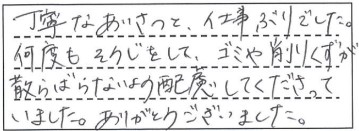 丁寧なあいさつと、仕事ぶりでした。
何度もそうじをして、ゴミや削りくずが
散らばらないよう配慮してくださって
いました。ありがとうございました。